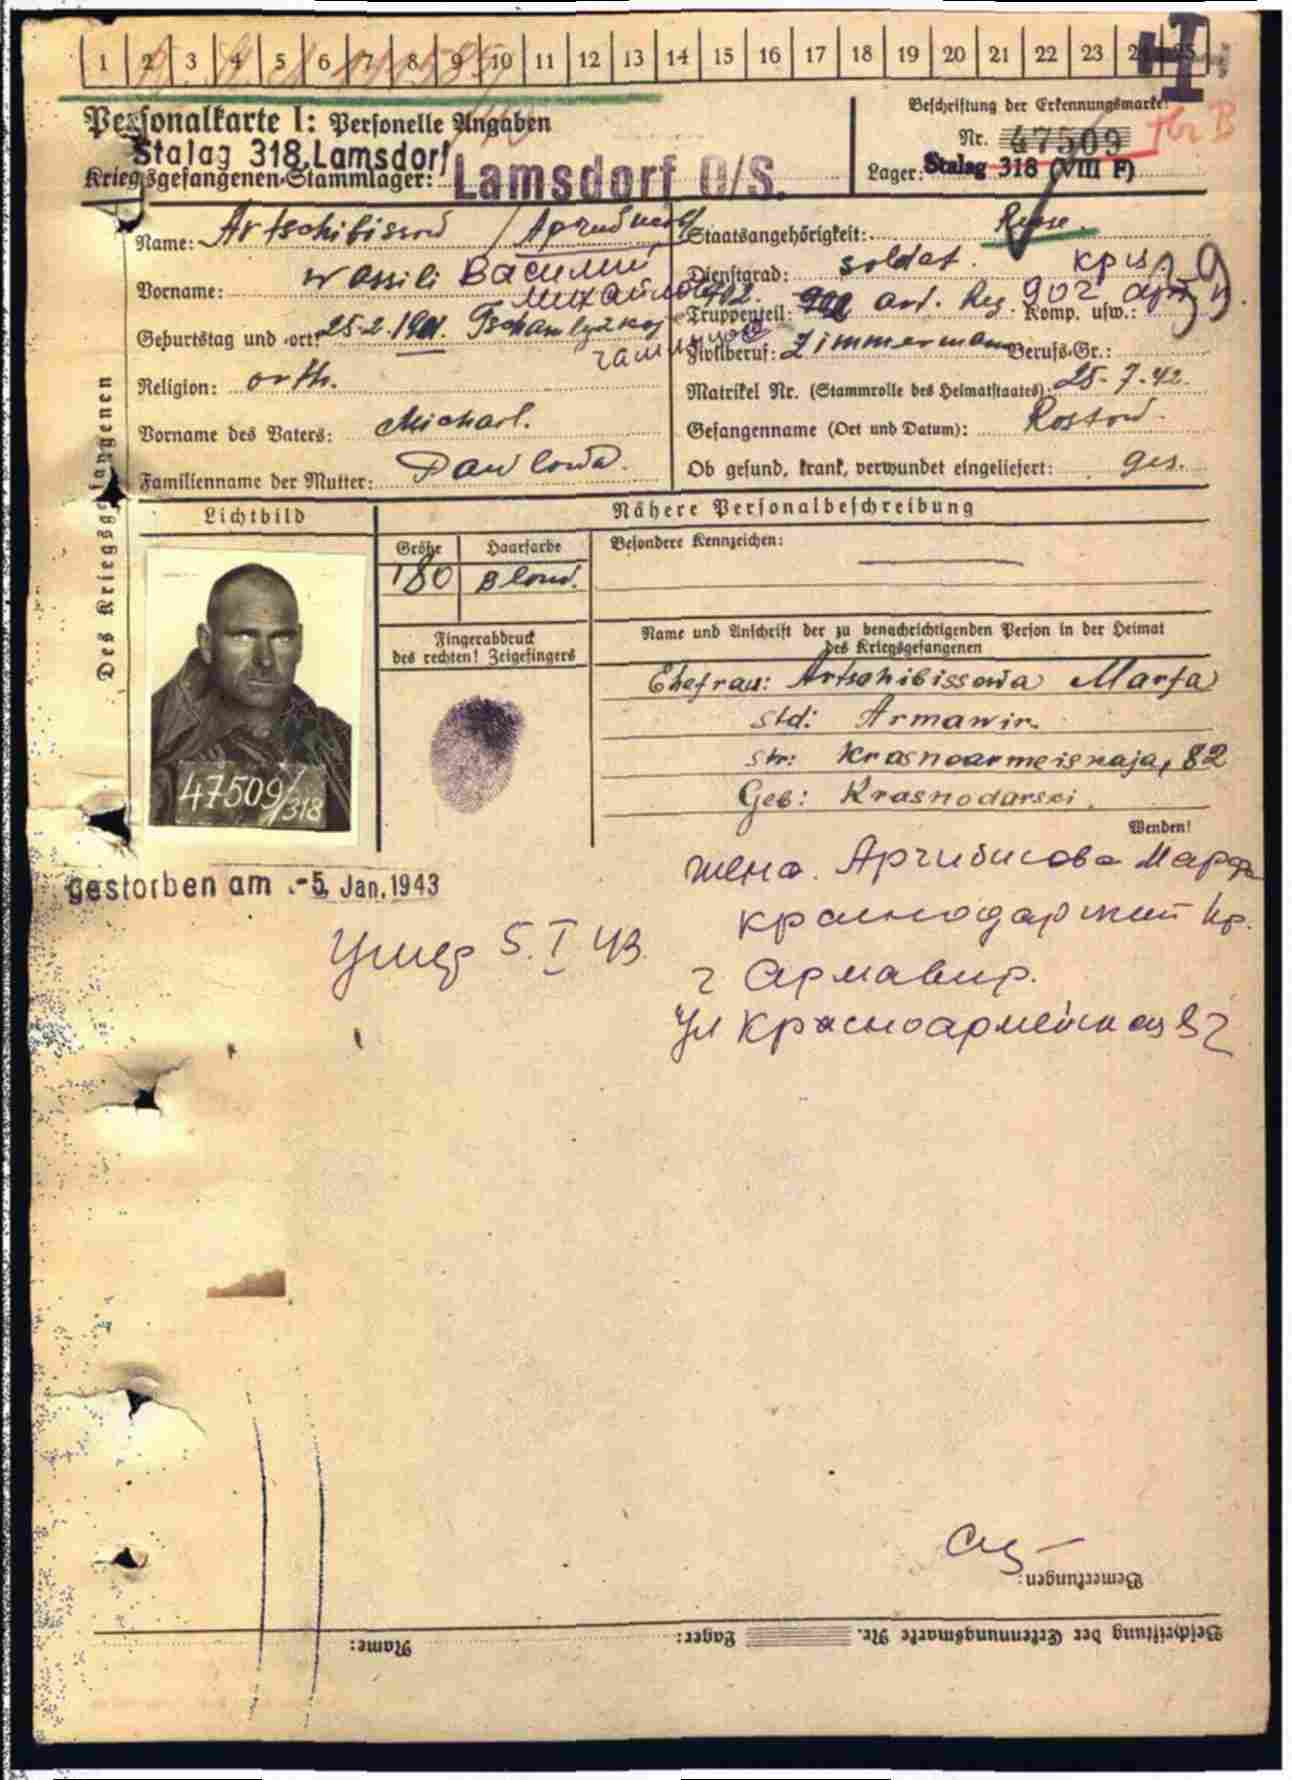 1 2 3 4 5 6 7 8 9 10 11 12 13 14 15 16 17 18 19 20 21 22 23 24 25
Personalkarte I: Personelle Angaben
Beschriftung der Erkennungsmarke:
Stalag 318, Lamsdorf
Nr. 47509
Kriegsgefangenen-Stammlager: Lamsdorf O/S.
Lager: Stalag 318 (VIII F)
Des Kriegsgefangenen
Name: Artschibissow /
Staatsangehörigkeit: Russe.
Vorname: Wassili Василий
Dienstgrad: soldat.
Truppenteil: art. Reg. 902 Komp. usw.:
Geburtstag und -ort: 25-2.1901.
Zivilberuf: Zimmermann Berufs-Gr.:
Religion: orth.
Matrikel Nr. (Stammrolle des Heimatstaates): 25-7-42.
Vorname des Vaters: Michael.
Gefangenname (Ort und Datum): Rostow.
Familienname der Mutter: Pawlowa.
Ob gesund, krank, verwundet eingeliefert: ges.
Lichtbild
Nähere Personalbeschreibung
Größe
Haarfarbe
Besondere Kennzeichen:
180
Blond.
Fingerabdruck
des rechten! Zeigefingers
Name und Anschrift der zu benachrichtigenden Person in der Heimat
des Kriegsgefangenen
Ehefrau: Artschibissowa Marfa
std: Armawir.
str: Krasnoarmeiskaja, 82
Geb: Krasnodarski.
47509/318
Wenden!
gestorben am -5. Jan. 1943
жена. Арчибисова Марфа
Краснодарский кр.
г Армавир.
Умер 5.I 43.
ул Красноармейская 82
Bemerkungen:
Beschriftung der Erkennungsmarke Nr. Lager: Name: